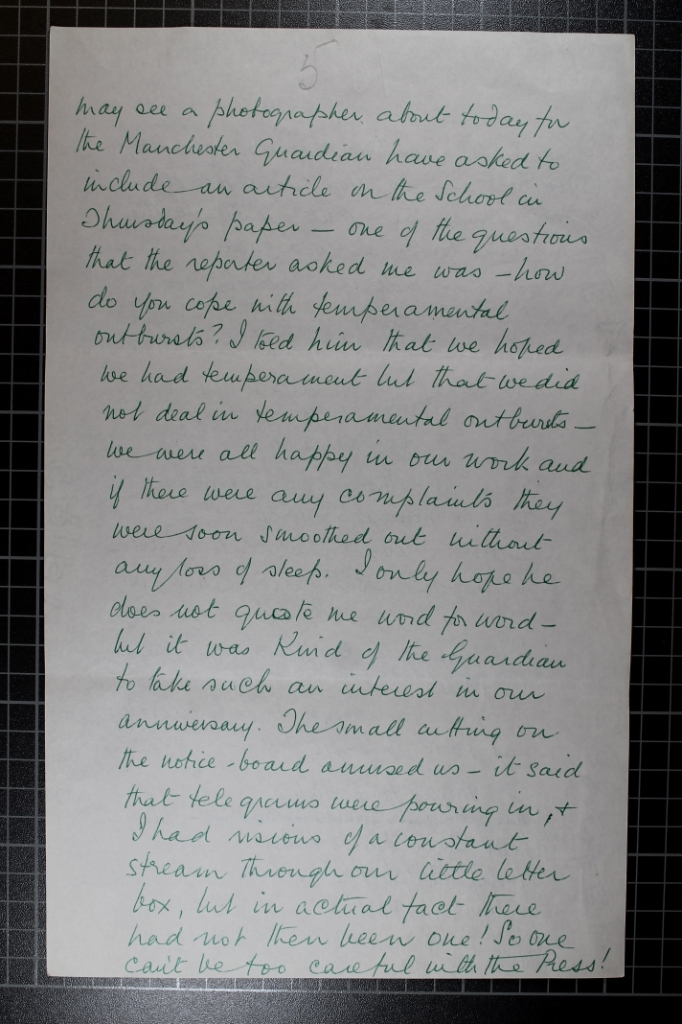 5
may see a photographer about today for
the Manchester Guardian have asked to
include an article on the School in
Thursday's paper — one of the questions
that the reporter asked me was — how
do you cope with temperamental
outbursts? I told him that we hoped
we had temperament but that we did
not deal in temperamental outbursts —
we were all happy in our work and
if there were any complaints they
were soon smoothed out without
any loss of sleep. I only hope he
does not quote me word for word —
but it was kind of the Guardian
to take such an interest in our
anniversary. The small cutting on
the notice-board amused us — it said
that telegrams were pouring in, +
I had visions of a constant
stream through our little letter
box, but in actual fact there
had not then been one! So one
can't be too careful with the Press!